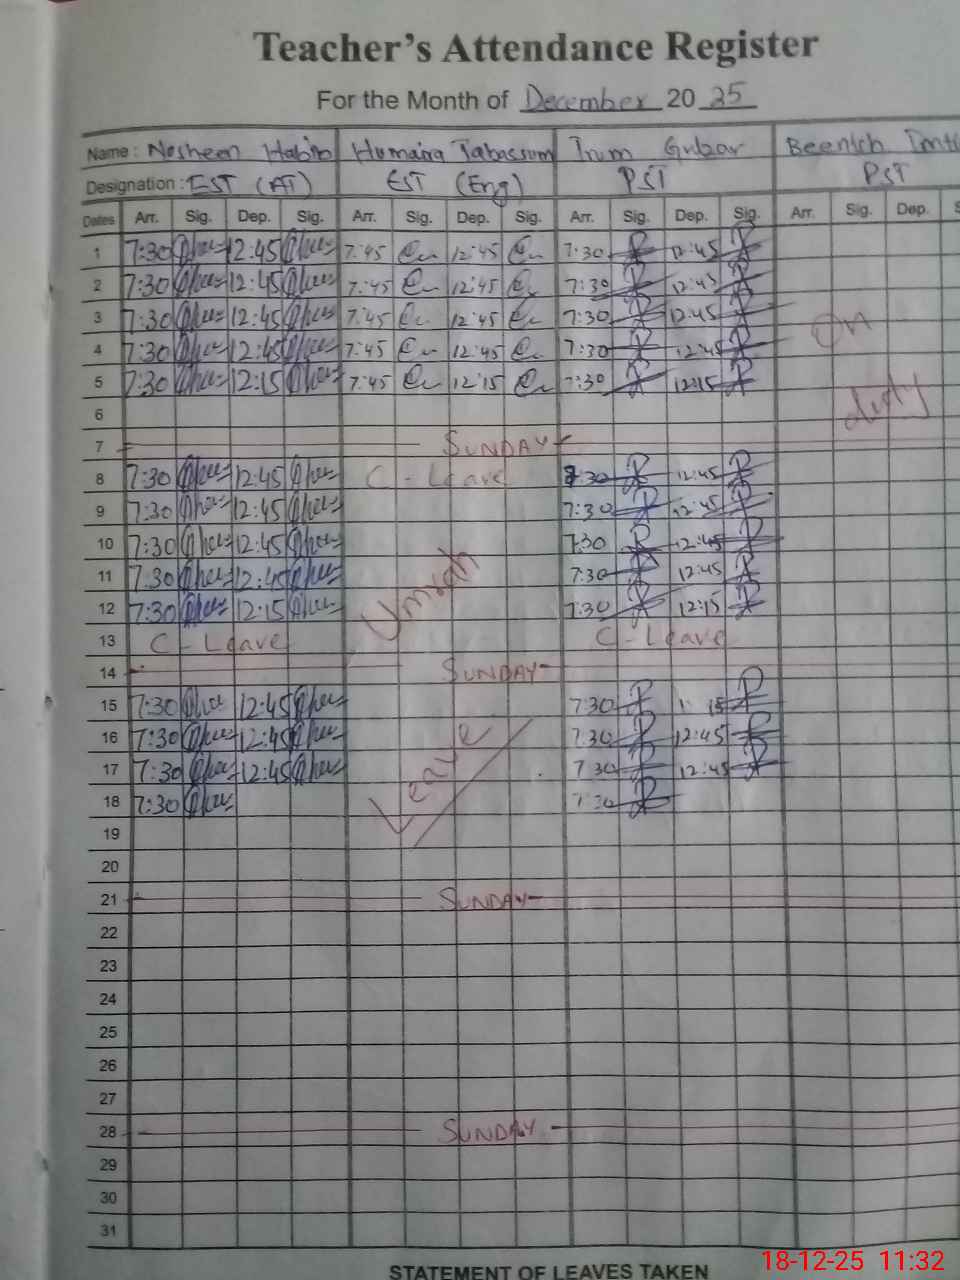 Teacher's Attendance Register
For the Month of December 2025
Name: Nosheen Habib Humaira Tabassum Irum Gulzar Beenish
Designation: EST (AT) EST (Eng) PST PST
Dates Arr. Sig. Dep. Sig. Arr. Sig. Dep. Sig. Arr. Sig. Dep. Sig. Arr. Sig. Dep. S
1 7:30 12:45 7:45 12:45 7:30 12:45
2 7:30 12:45 7:45 12:45 7:30 12:45
3 7:30 12:45 7:45 12:45 7:30 12:45 On
4 7:30 12:45 7:45 12:45 7:30 12:45
5 7:30 12:15 7:45 12:15 7:30 12:15 duty
6
7 SUNDAY
8 7:30 12:45 C - Leave 7:30 12:45
9 7:30 12:45 7:30 12:45
10 7:30 12:45 7:30 12:45
11 7:30 12:45 7:30 12:45
12 7:30 12:15 Umrah 7:30 12:15
13 C - Leave C - Leave
14 SUNDAY
15 7:30 12:45 7:30
16 7:30 12:45 Leave 7:30 12:45
17 7:30 12:45 7:30 12:45
18 7:30 7:30
19
20
21 SUNDAY
22
23
24
25
26
27
28 SUNDAY
29
30
31
STATEMENT OF LEAVES TAKEN
18-12-25 11:32